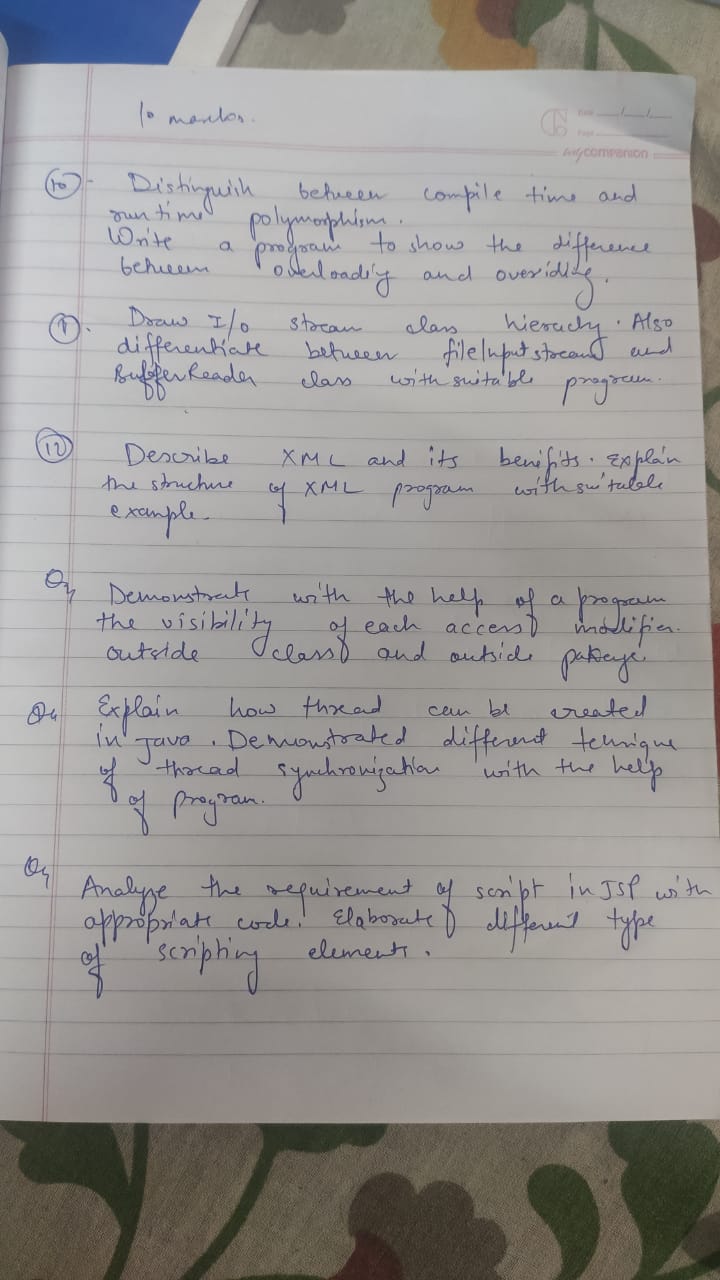 10 marks.
Companion
(10) - Distinguish between compile time and
run time polymorphism.
Write a program to show the difference
between overloadily and overidding.
Draw I/o stream class hierachy. Also
differentiate between file Input stream and
BufferReader class with suitable program.
(12) Describe XML and its benifits. Explain
the structure of XML program with suitable
example.
Q Demonstrate with the help of a program
the visibility of each access modifier.
outside class and outside package.
Q Explain how thread can be created
in Java. Demonstrated different tehnique
of thread synchronization with the help
of program.
Q Analyze the requirement of script in JSP with
appropriate code. Elaborate different type
of scripting elements.